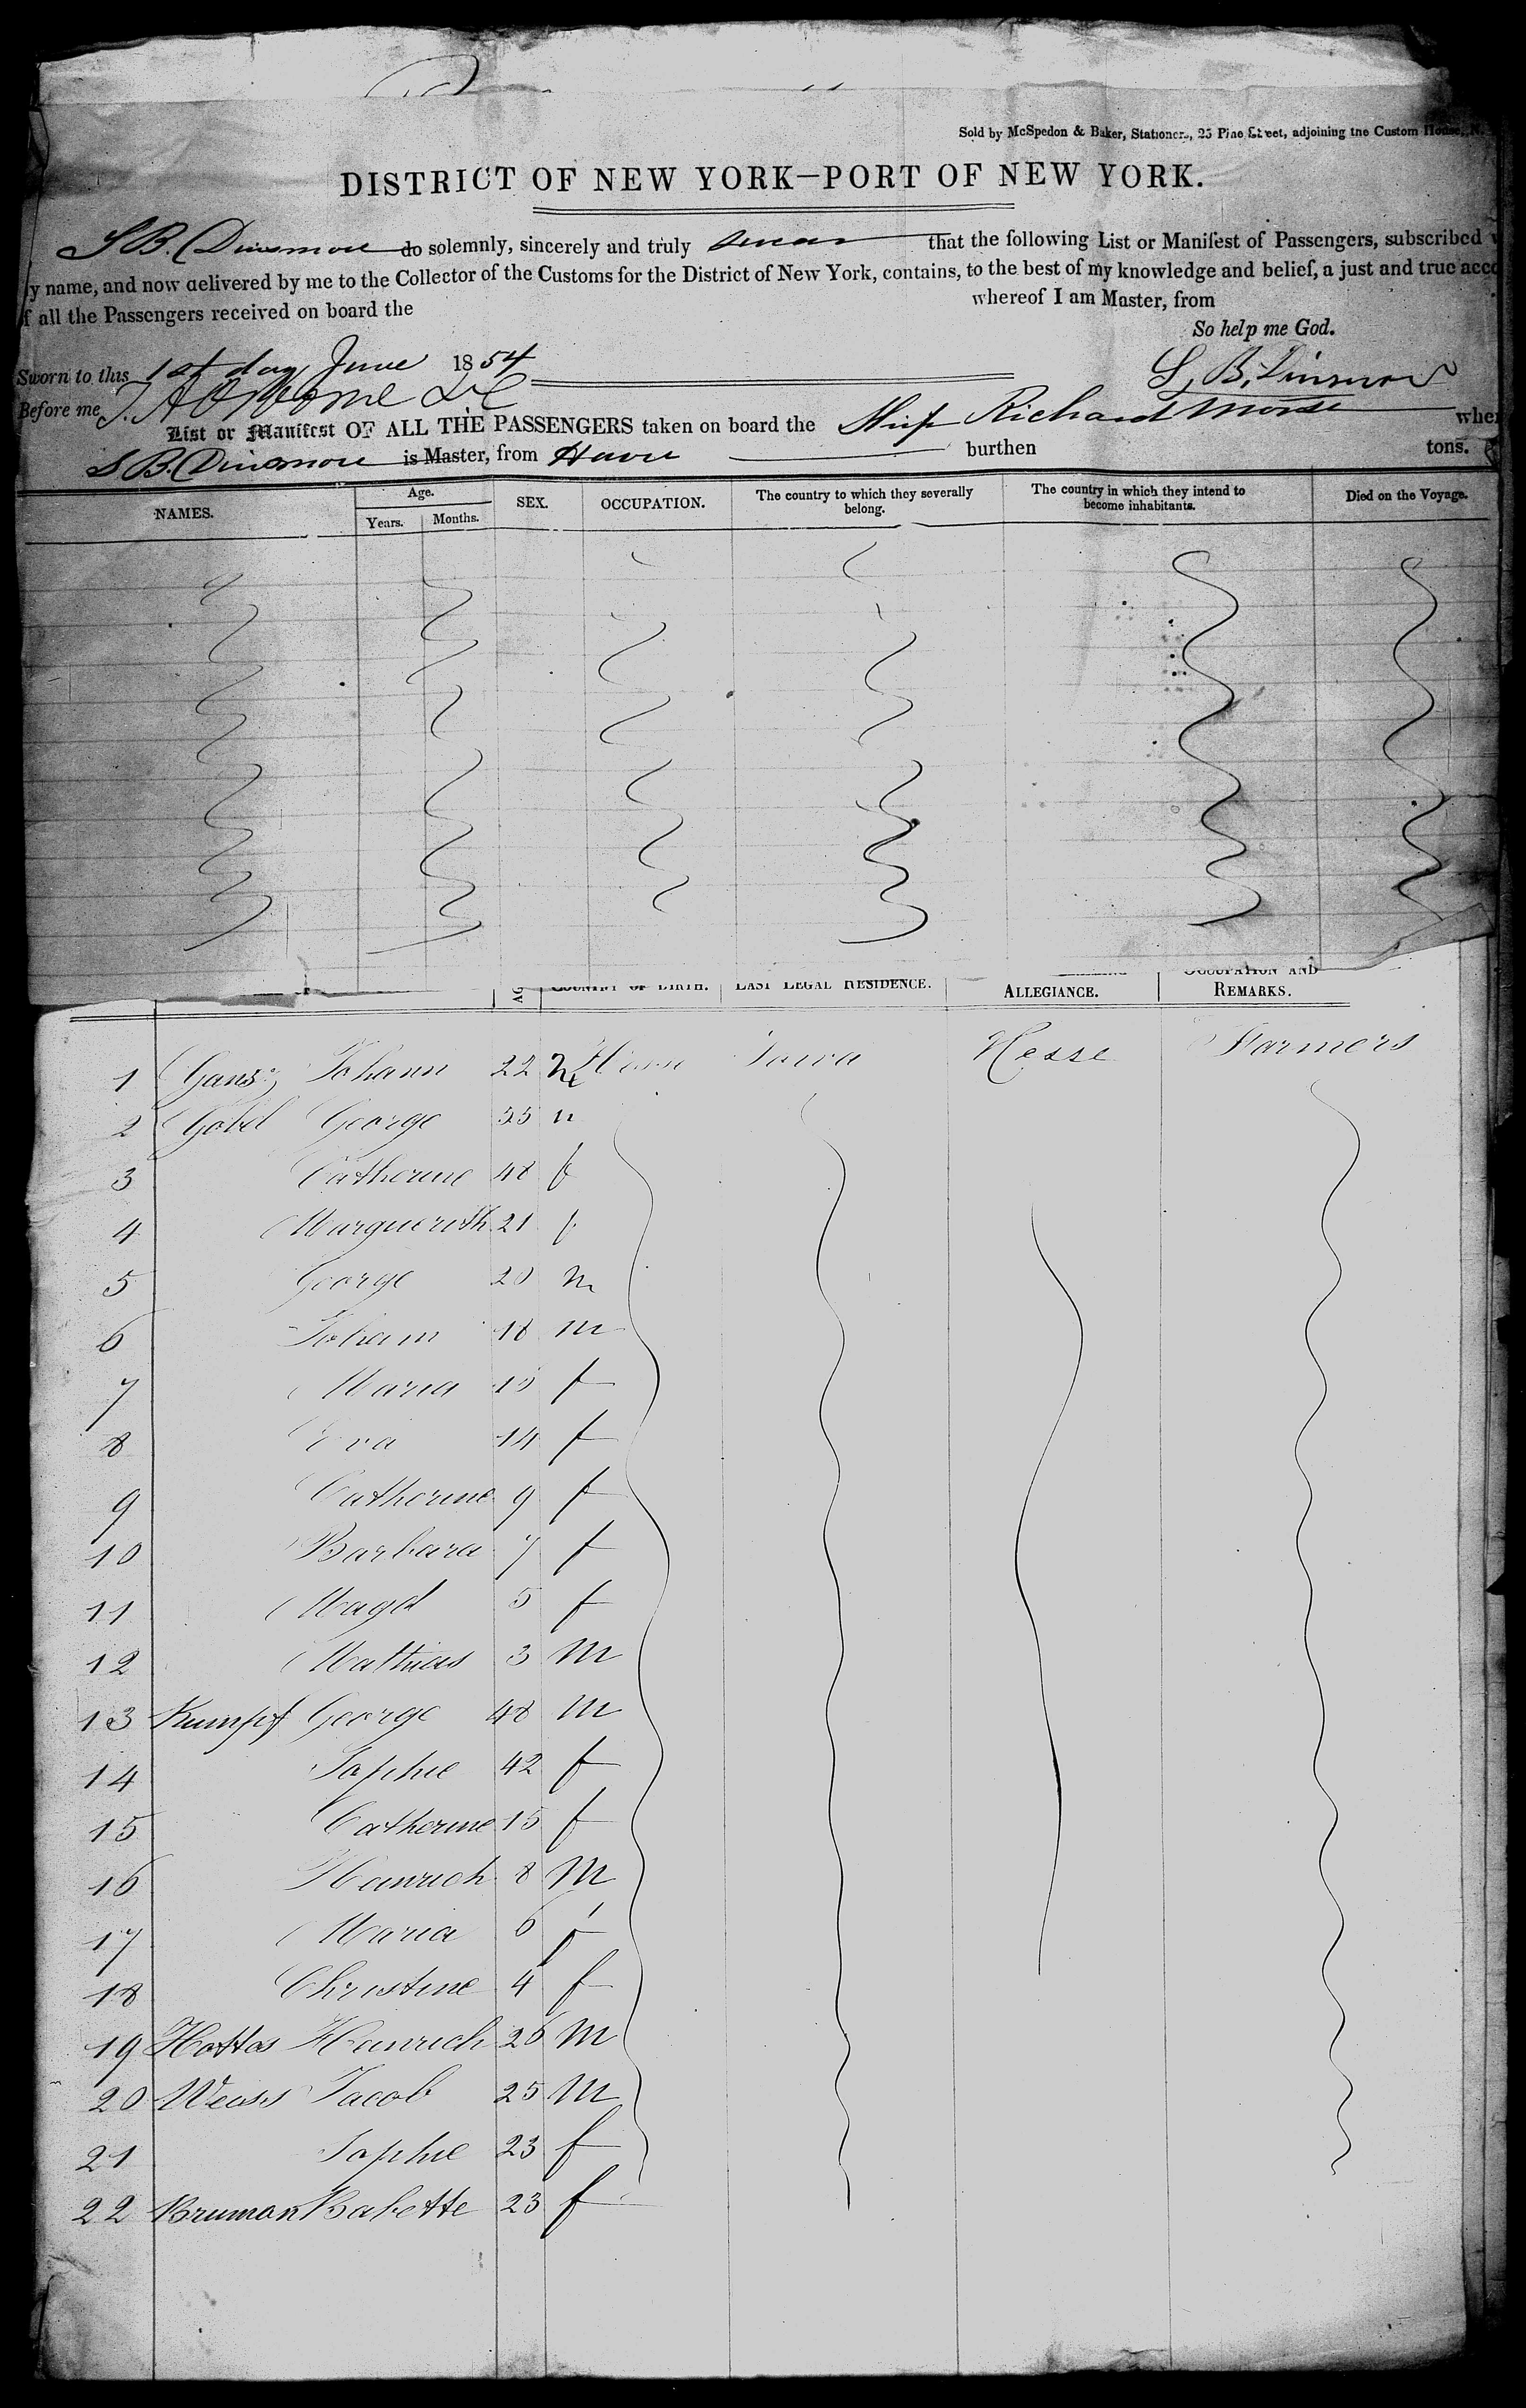 Sold by McSpedon & Baker, Stationers, 25 Pine Street, adjoining the Custom House, N.
DISTRICT OF NEW YORK—PORT OF NEW YORK.
S B. Dinsmore do solemnly, sincerely and truly swear that the following List or Manifest of Passengers, subscribed
y name, and now delivered by me to the Collector of the Customs for the District of New York, contains, to the best of my knowledge and belief, a just and true acco
f all the Passengers received on board the whereof I am Master, from
So help me God.
Sworn to this 1st day June 1854
S, B, Dinsmore
Before me
List or Manifest OF ALL THE PASSENGERS taken on board the Ship Richard Morse wher
S B. Dinsmore is Master, from Havre burthen tons.
NAMES. Age. Years. Months. SEX. OCCUPATION. The country to which they severally belong. The country in which they intend to become inhabitants. Died on the Voyage.
COUNTRY OF BIRTH. LAST LEGAL RESIDENCE. ALLEGIANCE. OCCUPATION AND REMARKS.
1 Ganz Johann 22 m Hesse Iowa Hesse Farmers
2 Gobel George 55 m
3 Catherine 48 f
4 Marguerith 21 f
5 George 20 m
6 Johann 18 m
7 Maria f
8 Eva 14 f
9 Catherine 9 f
10 Barbara 7 f
11 Magd 5 f
12 Mathias 3 m
13 Kumpf George 48 m
14 Sophie 42 f
15 Catherine 15 f
16 Heinrich 8 m
17 Maria 6 f
18 Christine 4 f
19 Hottes Heinrich 26 m
20 Weiss Jacob 25 m
21 Sophie 23 f
22 Bruman Babette 23 f